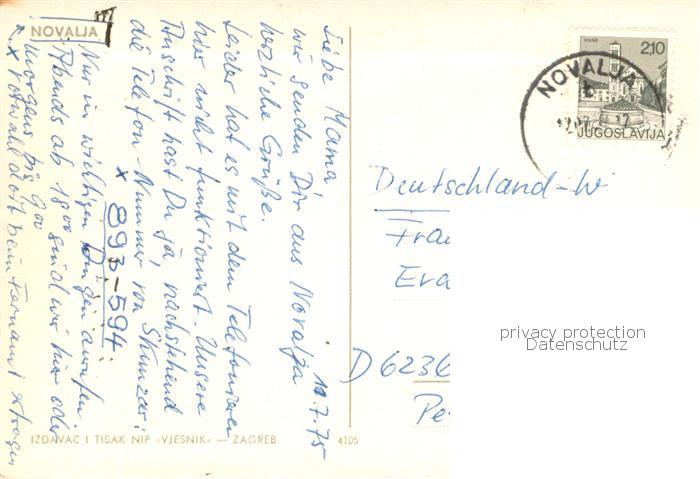 NOVALJA !!!
11.7.75
Liebe Mama,
wir senden Dir aus Novalja
herzliche Grüße.
Leider hat es mit dem Telefonieren
hier nicht funktioniert. Unsere
Anschrift hast Du ja, nachstehend
die Telefon-Nummer von Skunzar:
x 893-594.
Nur in wichtigen Dingen anrufen.
Abends ab 18 00 sind wir hier oder
morgens bis 9 00
x Vorwahl dort beim Fernamt erfragen
IZDAVAČ I TISAK NIP »VJESNIK« — ZAGREB
4105
HVAR
2,10
JUGOSLAVIJA
NOVALJA
Deutschland-W
Frau
Eva
D 6236
privacy protection
Datenschutz